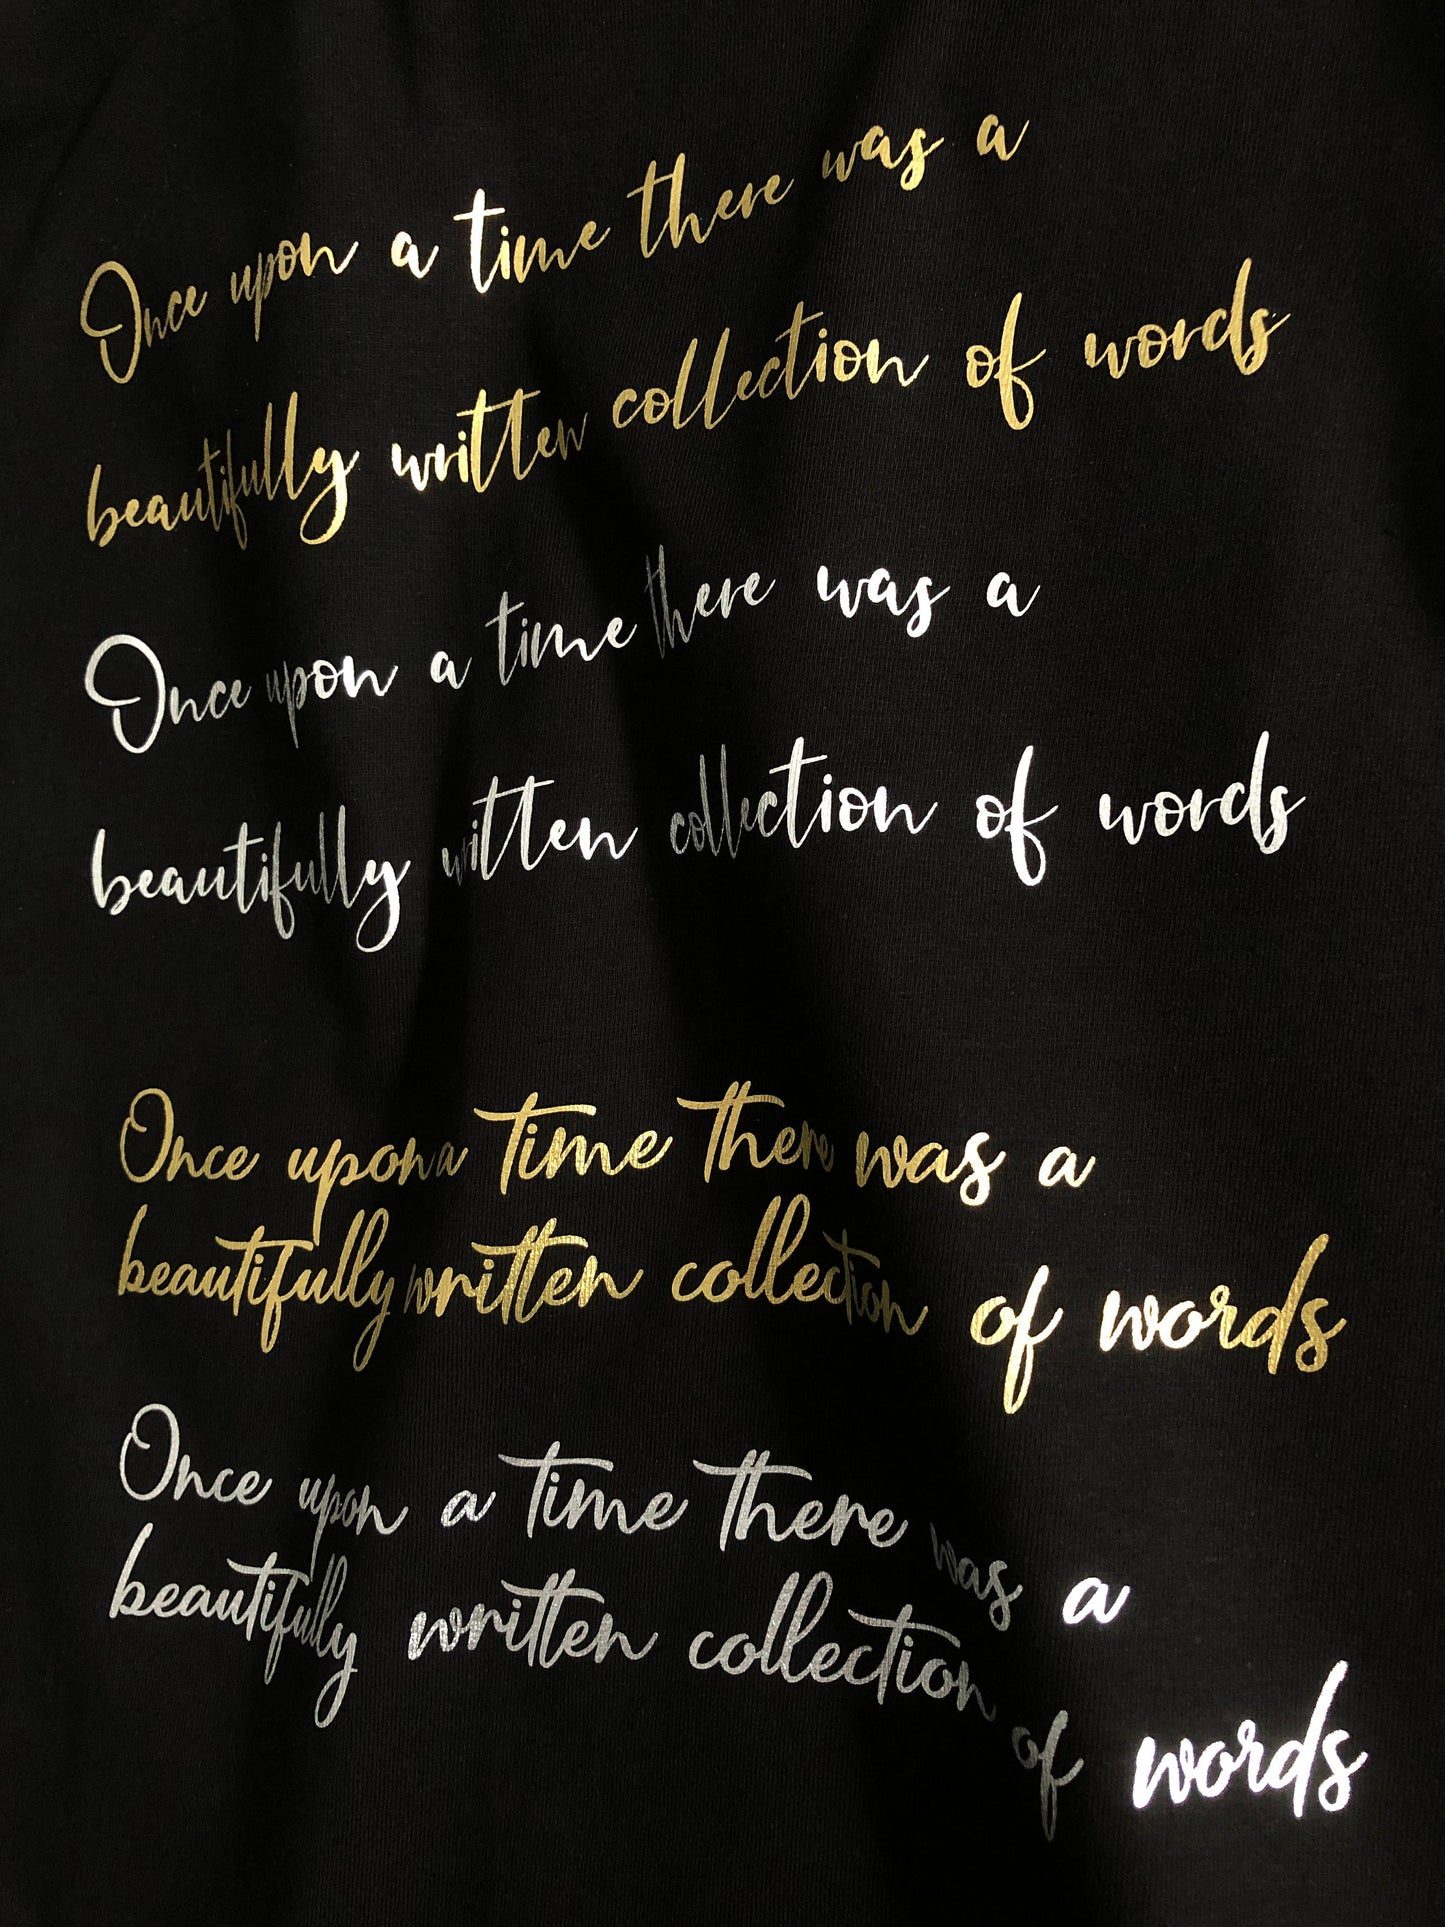 Once upon a time there was a
beautifully written collection of words
Once upon a time there was a
beautifully written collection of words
Once upon a time there was a
beautifully written collection of words
Once upon a time there was a
beautifully written collection of words